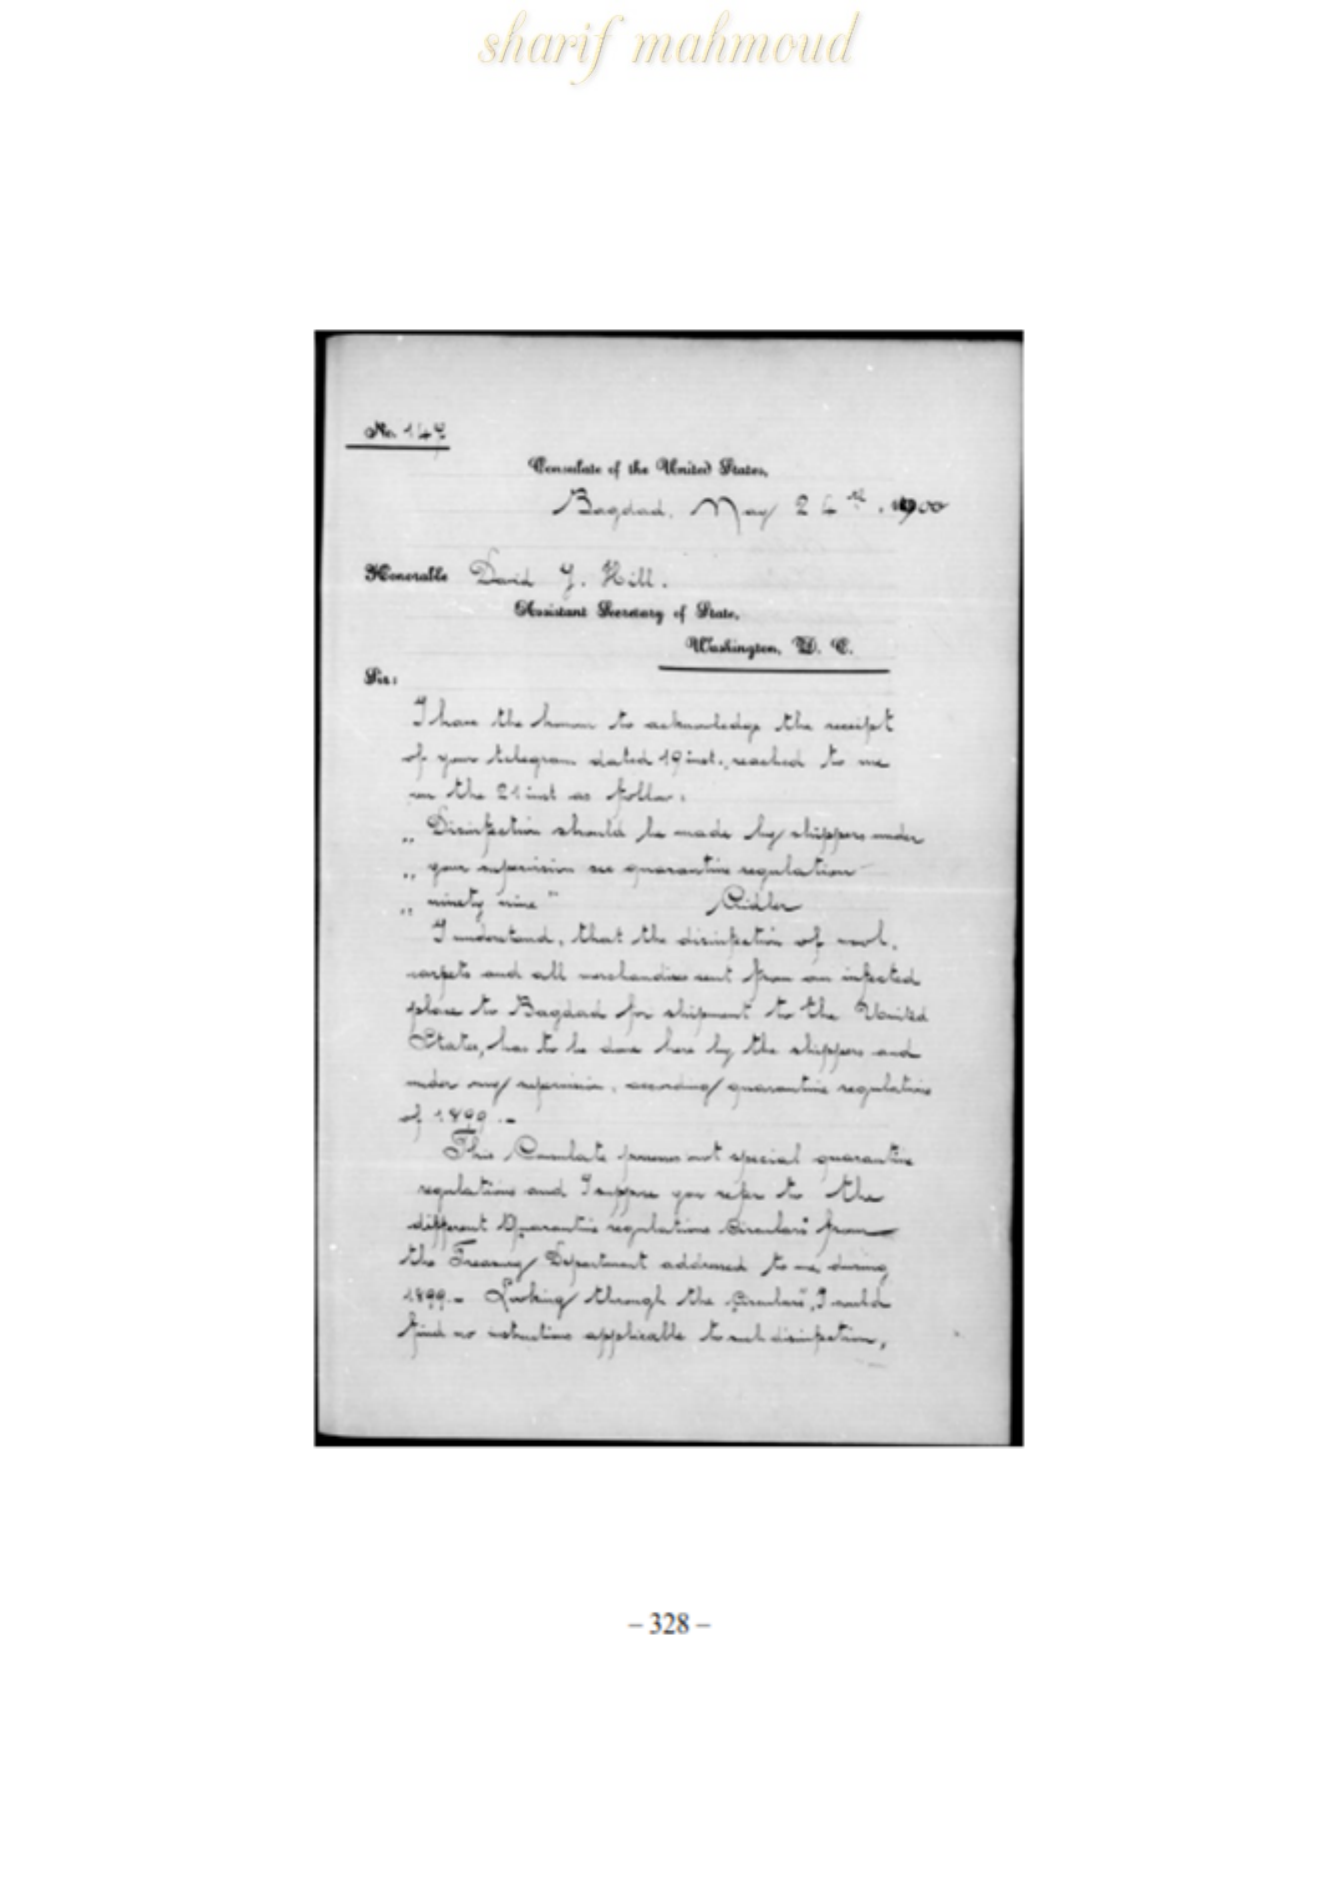 sharif mahmoud
No. 147
Consulate of the United States,
Bagdad, May 24th, 1900
Honorable David J. Hill.
Assistant Secretary of State,
Washington, D. C.
Sir:
I have the honor to acknowledge the receipt
of your telegram dated 19 inst., reached to me
on the 21 inst as follow:
„ Disinfection should be made by shippers under
„ your supervision see quarantine regulation
„ ninety nine"
I understand, that the disinfection of wool,
carpets and all merchandise sent from an infected
place to Bagdad for shipment to the United
States, has to be done here by the shippers and
under my supervision, according quarantine regulations
of 1899.-
This Consulate possess not special quarantine
regulations and I suppose you refer to the
different Quarantine regulations Circulars from
the Treasury Department addressed to me during
1899.- Looking through the Circulars, I could
find no instructions applicable to such disinfection,
– 328 –